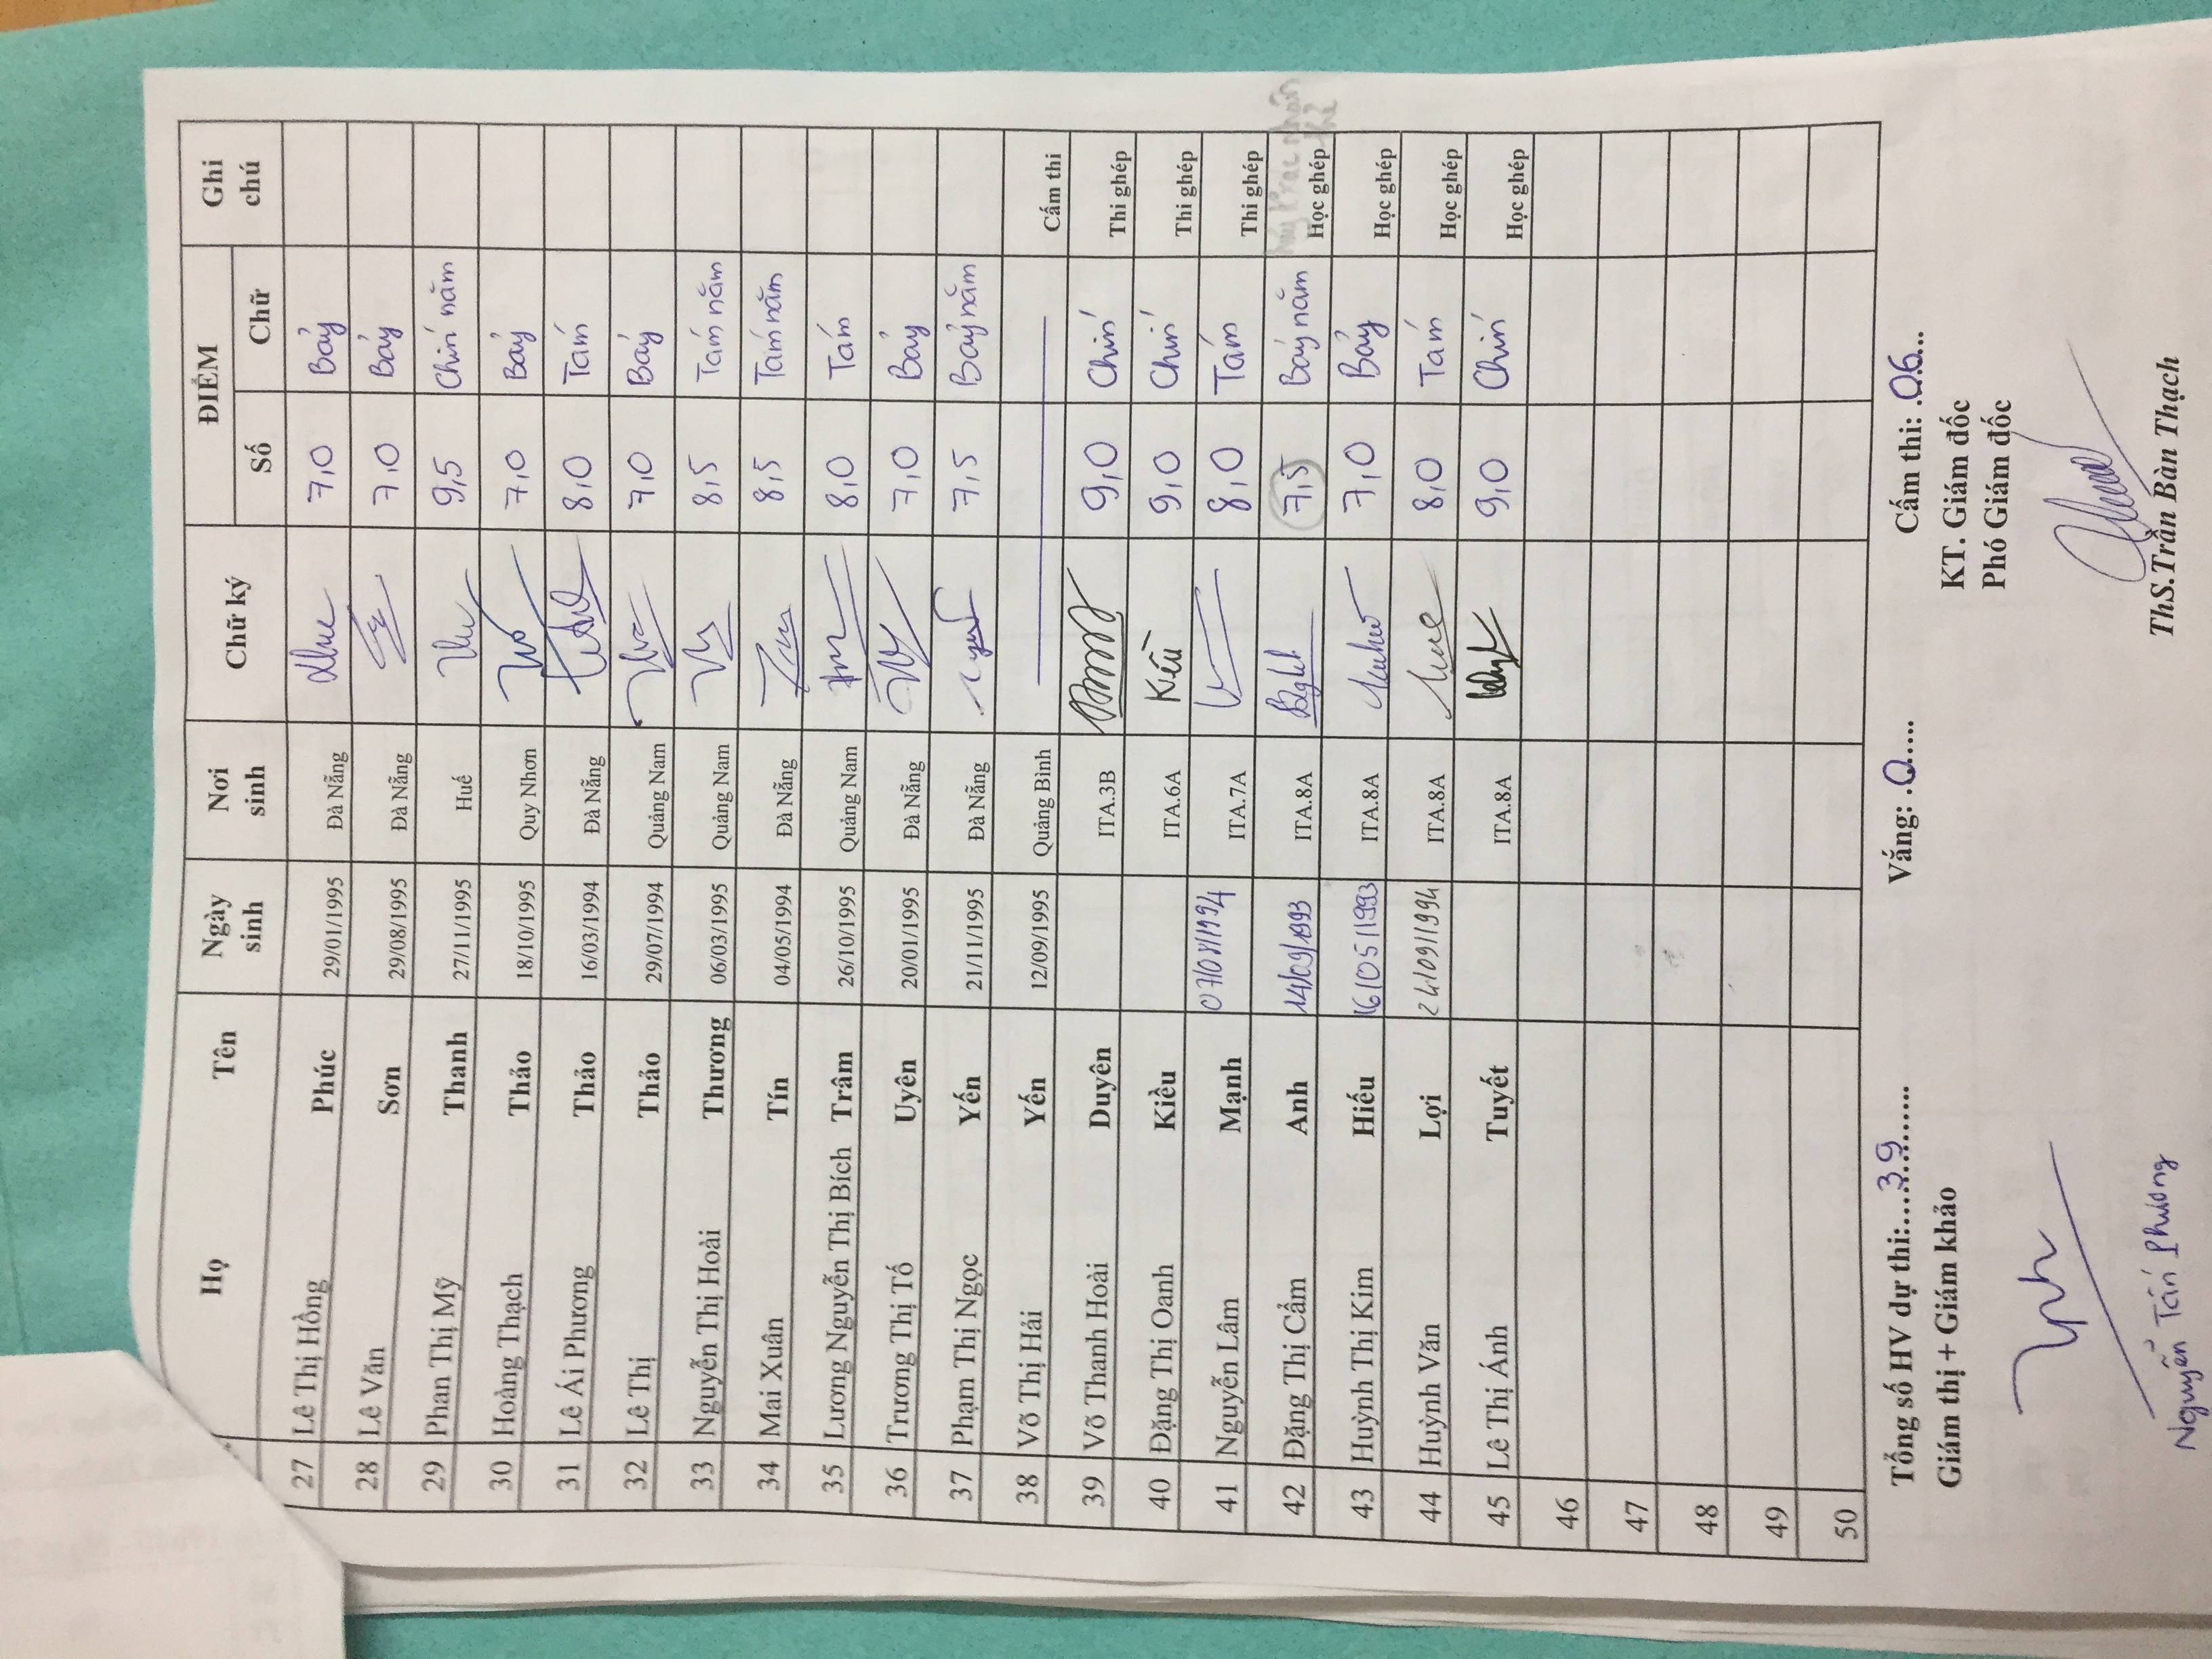 Họ Tên Ngày sinh Nơi sinh Chữ ký ĐIỂM Ghi chú
Số Chữ
27 Lê Thị Hồng Phúc 29/01/1995 Đà Nẵng 7,0 Bảy
28 Lê Văn Sơn 29/08/1995 Đà Nẵng 7,0 Bảy
29 Phan Thị Mỹ Thanh 27/11/1995 Huế 9,5 Chín năm
30 Hoàng Thạch Thảo 18/10/1995 Quy Nhơn 7,0 Bảy
31 Lê Ái Phương Thảo 16/03/1994 Đà Nẵng 8,0 Tám
32 Lê Thị Thảo 29/07/1994 Quảng Nam 7,0 Bảy
33 Nguyễn Thị Hoài Thương 06/03/1995 Quảng Nam 8,5 Tám năm
34 Mai Xuân Tín 04/05/1994 Đà Nẵng 8,5 Tám năm
35 Lương Nguyễn Thị Bích Trâm 26/10/1995 Quảng Nam 8,0 Tám
36 Trương Thị Tố Uyên 20/01/1995 Đà Nẵng 7,0 Bảy
37 Phạm Thị Ngọc Yến 21/11/1995 Đà Nẵng 7,5 Bảy năm
38 Võ Thị Hải Yến 12/09/1995 Quảng Bình Cấm thi
39 Võ Thanh Hoài Duyên ITA.3B 9,0 Chín Thi ghép
40 Đặng Thị Oanh Kiều ITA.6A Kiều 9,0 Chín Thi ghép
41 Nguyễn Lâm Mạnh 07/08/1994 ITA.7A 8,0 Tám Thi ghép
42 Đặng Thị Cẩm Anh 14/09/1993 ITA.8A 7,5 Bảy năm Học ghép
43 Huỳnh Thị Kim Hiếu 16/05/1993 ITA.8A 7,0 Bảy Học ghép
44 Huỳnh Văn Lợi 24/09/1994 ITA.8A 8,0 Tám Học ghép
45 Lê Thị Ánh Tuyết ITA.8A 9,0 Chín Học ghép
46
47
48
49
50
Tổng số HV dự thi:....39........ Vắng: .0..... Cấm thi: .06...
Giám thị + Giám khảo KT. Giám đốc
Phó Giám đốc
Nguyễn Tấn Phương ThS.Trần Bàn Thạch